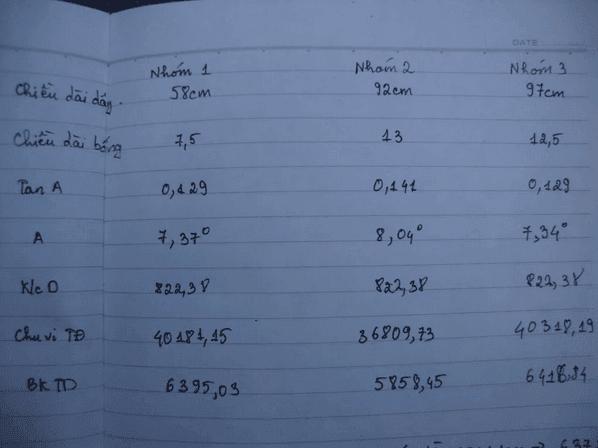 DATE
Nhóm 1 Nhóm 2 Nhóm 3
Chiều dài dây. 58cm 92cm 97cm
Chiều dài bóng 7,5 13 12,5
Tan A 0,129 0,141 0,129
A 7,37° 8,04° 7,34°
K/c D 822,38 822,38 822,38
Chu vi TĐ 40181,15 36809,73 40318,19
BK TĐ 6395,03 5858,45